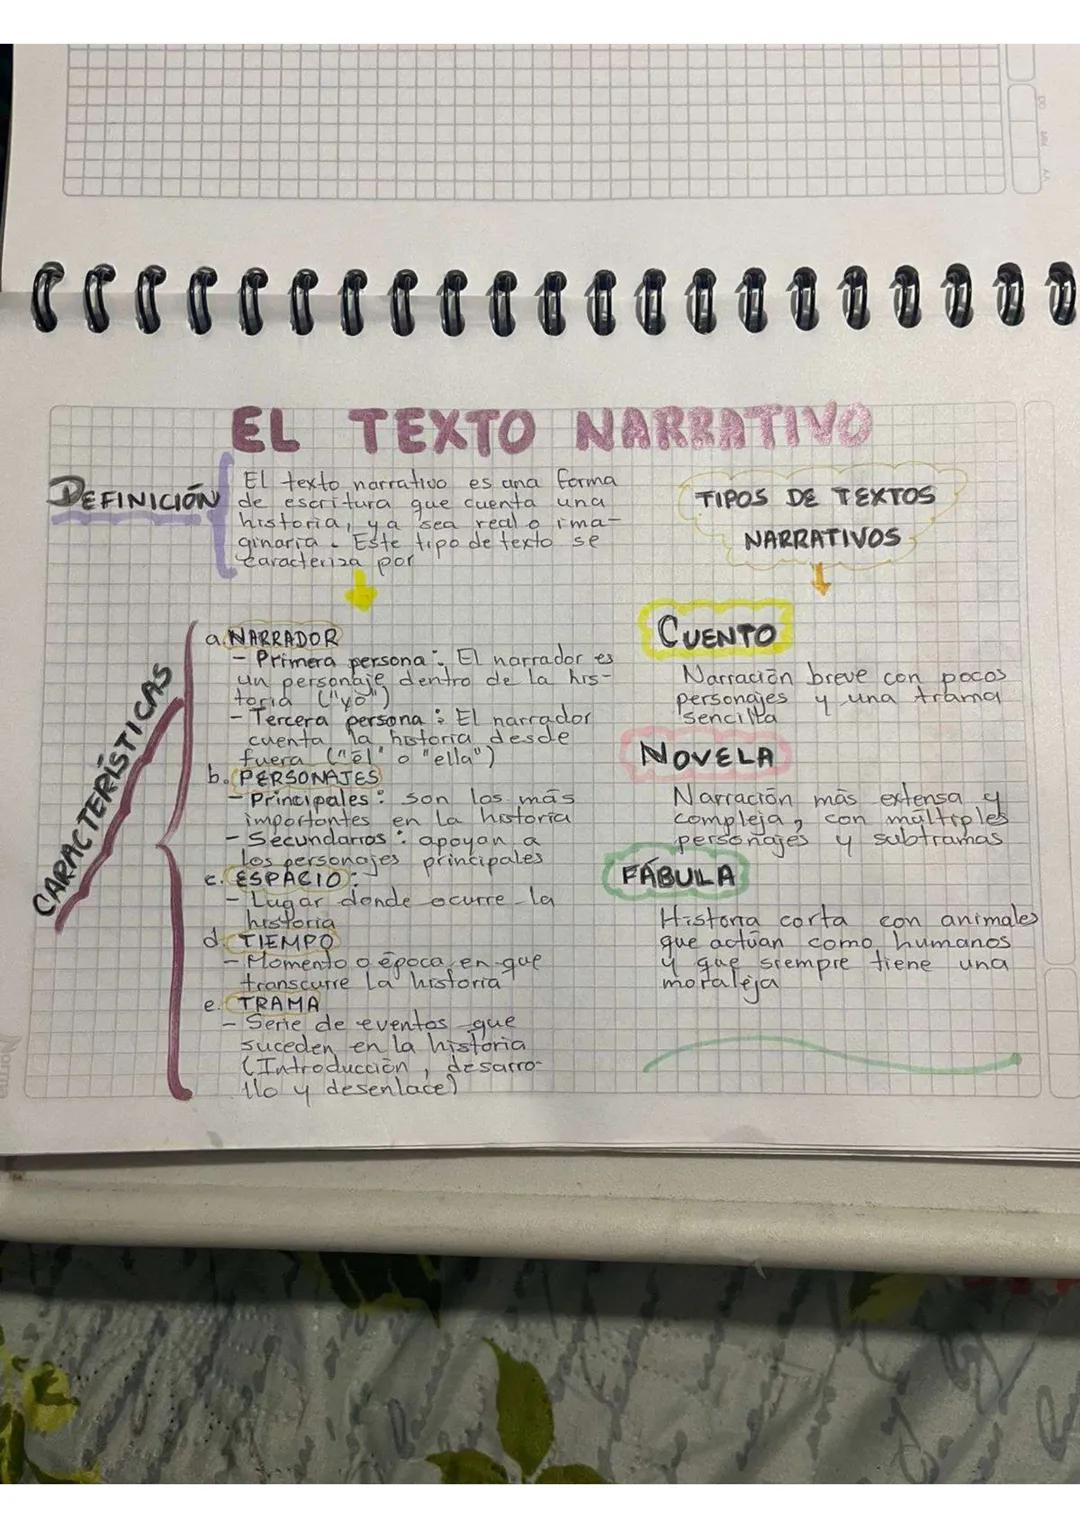 EL TEXTO NARRATIVO
DEFINICIÓN
El texto narrativo es una forma
de escritura que cuenta una
historia, ya sea real o ima-
ginaria. Este tipo de texto se
caracteriza por
CARACTERÍSTICAS
a. NARRADOR
- Primera persona: El narrador es
un personaje dentro de la his-
toria ("yo")
- Tercera persona: El narrador
cuenta la historia desde
fuera ("él" o "ella")
b. PERSONAJES
- Principales: son los más
importantes en la historia
- Secundarios: apoyan a
los personajes principales
c. ESPACIO:
- Lugar donde ocurre la
historia
d. TIEMPO
- Momento o época en que
transcurre la historia
e. TRAMA
- Serie de eventos que
suceden en la historia
(Introducción, desarro-
llo y desenlace)
TIPOS DE TEXTOS
NARRATIVOS
CUENTO
Narración breve con pocos
personajes y una trama
sencilla
NOVELA
Narración más extensa y
compleja, con múltiples
personajes y subtramas
FÁBULA
Historia corta con animales
que actúan como humanos
y que siempre tiene una
moraleja